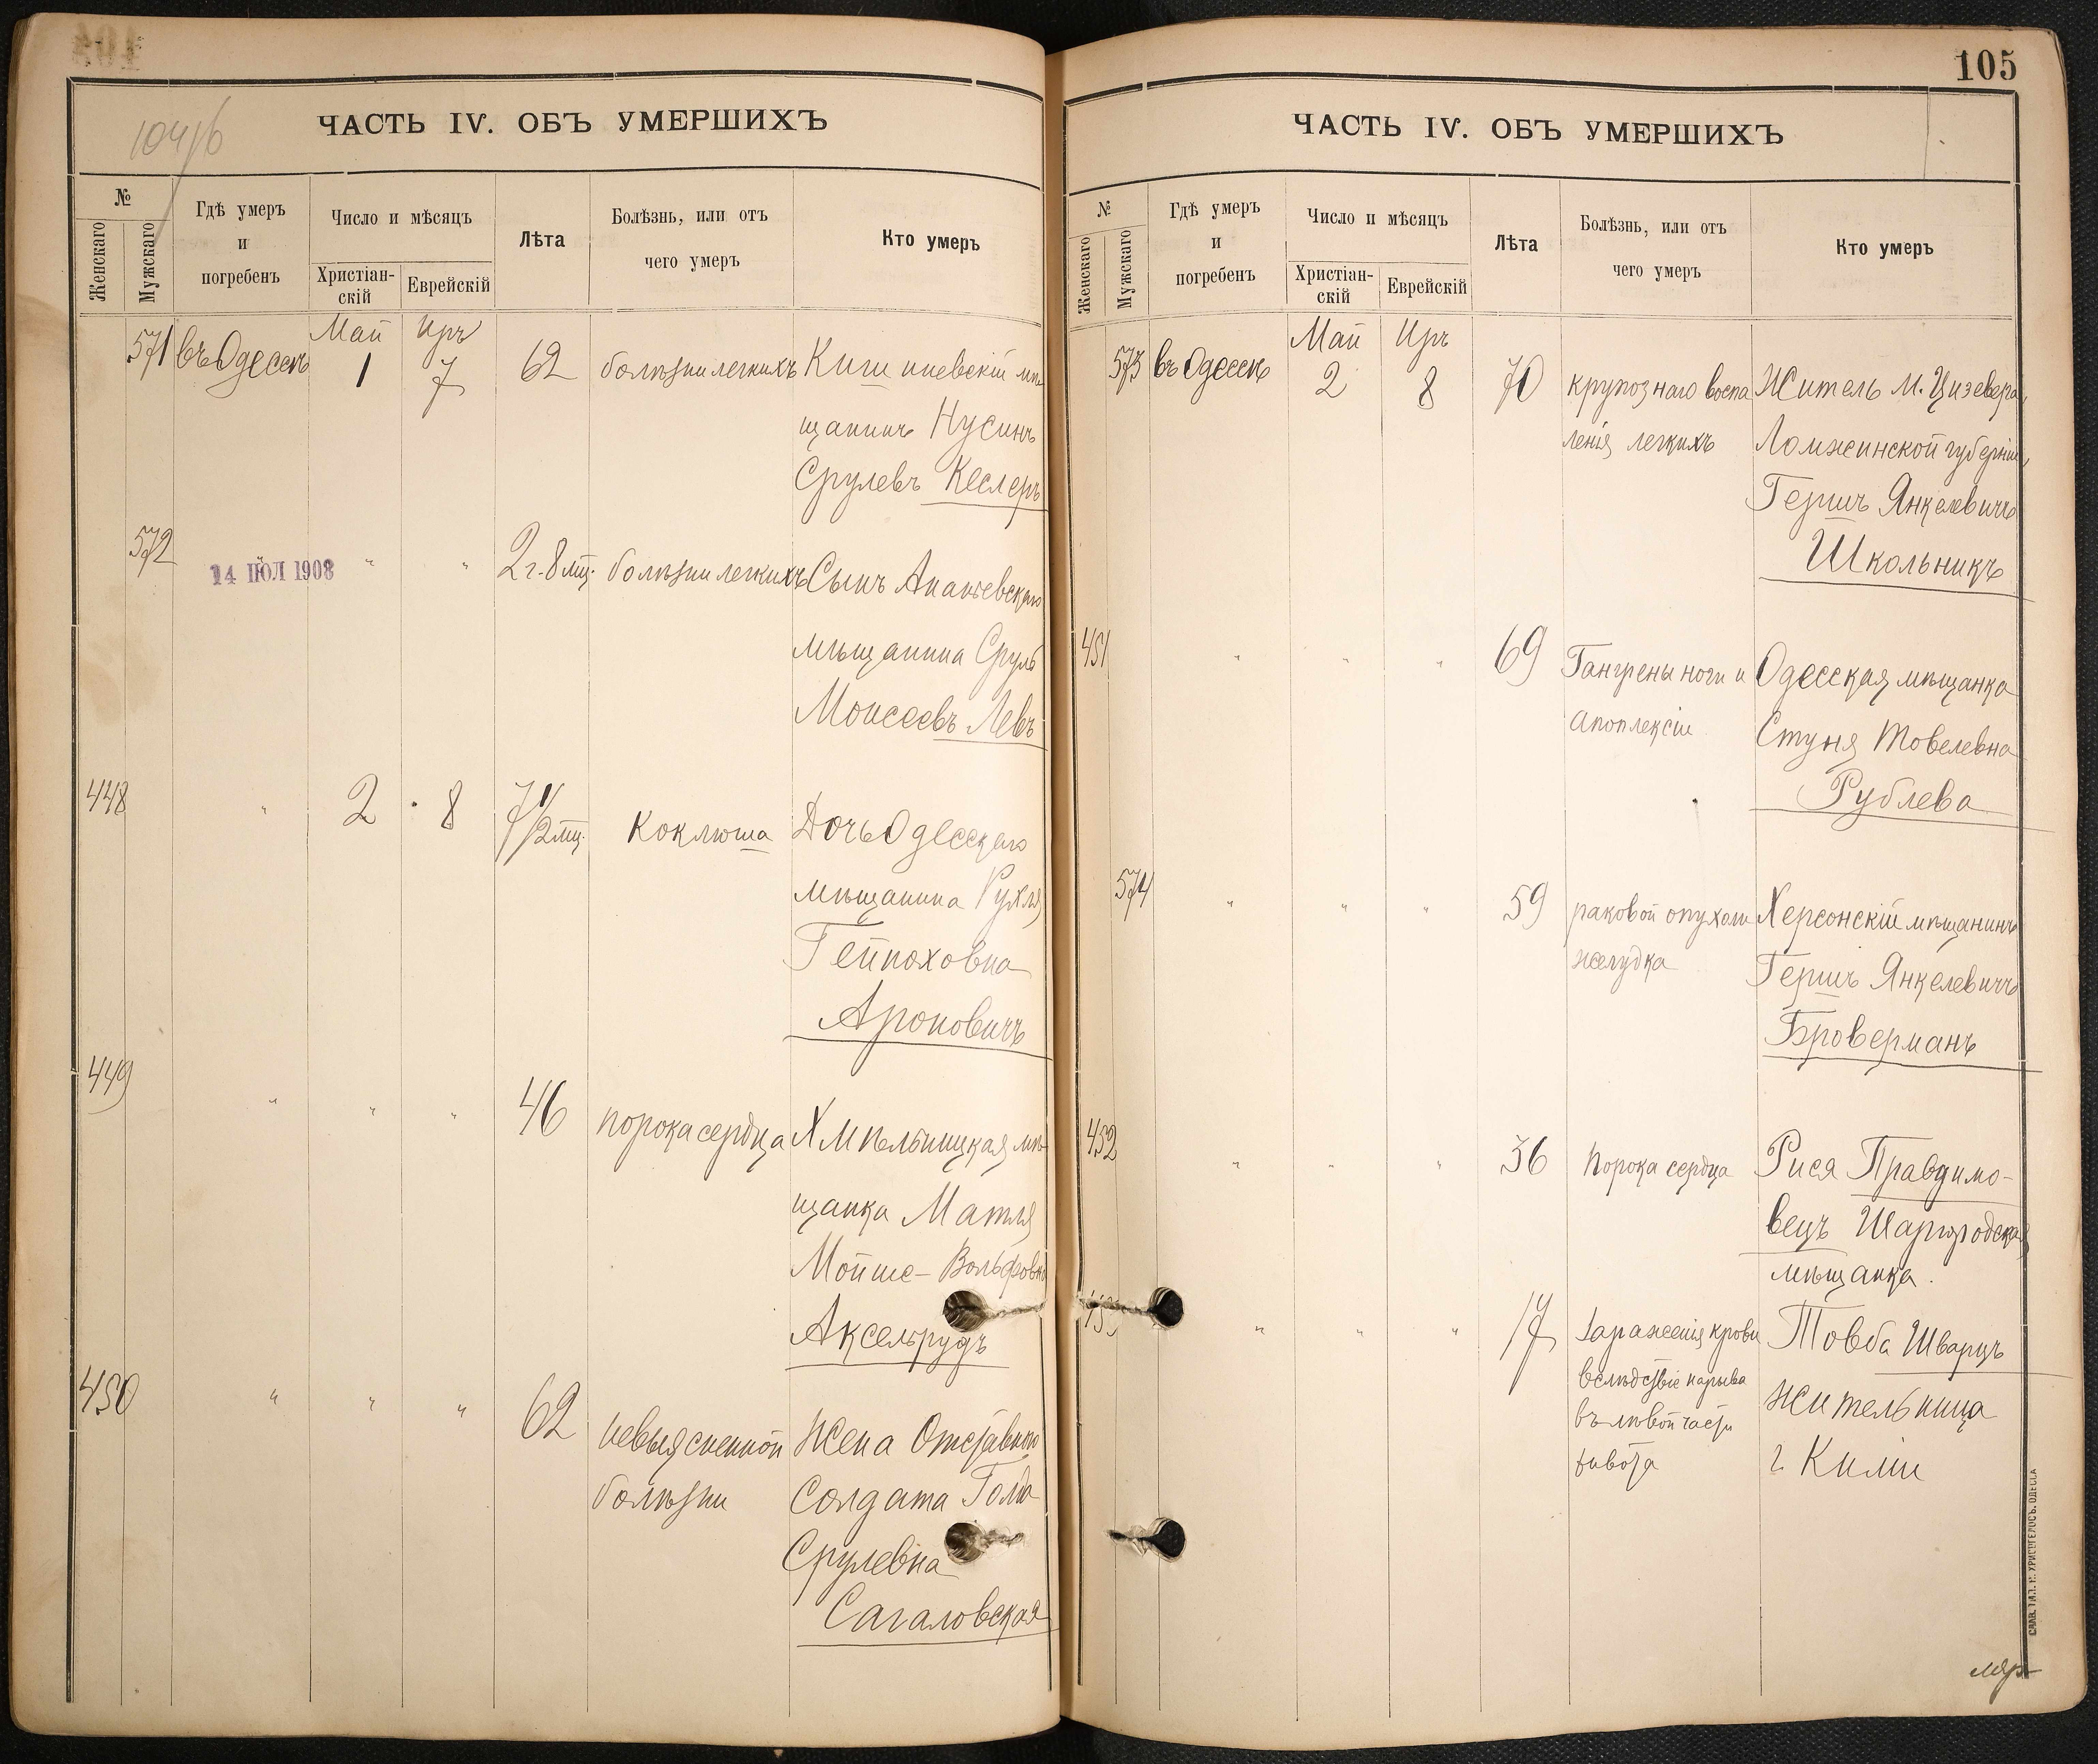 104 об
ЧАСТЬ IV. ОБЪ УМЕРШИХЪ
№
Женскаго
Мужскаго
Гдѣ умеръ
и
погребенъ
Число и мѣсяцъ
Христіан-
скій
Еврейскій
Лѣта
Болѣзнь, или отъ
чего умеръ
Кто умеръ
571 въ Одессѣ Май 1 Иръ 7 62 болѣзни легкихъ Кишиневскій мѣ
щанинъ Нусинъ
Срулевъ Кеслеръ
572 " " " 2 г. 8 мц. болѣзни легкихъ Сынъ Ананьевскаго
14 ІЮЛ 1908
мѣщанина Сруль
Моисеевъ Левъ
448 " 2 8 7 1/2 мц. Коклюша Дочь Одесскаго
мѣщанина Рухля
Гейноховна
Ароновичъ
449 " " " 46 порока сердца Хмѣльницкая мѣ
щанка Матля
Мойше-Вольфовна
Аксельрудъ
450 " " " 62 невыясненной Жена Отставного
болѣзни солдата Голда
Срулевна
Сагаловская
105
ЧАСТЬ IV. ОБЪ УМЕРШИХЪ
№
Женскаго
Мужскаго
Гдѣ умеръ
и
погребенъ
Число и мѣсяцъ
Христіан-
скій
Еврейскій
Лѣта
Болѣзнь, или отъ
чего умеръ
Кто умеръ
573 въ Одессѣ Май 2 Иръ 8 70 крупознаго воспа Житель м. Цизевера
ленія легкихъ Ломжинской губерніи
Гершъ Янкелевичъ
Школьникъ
451 " " " 69 Гангрены ноги и Одесская мѣщанка
апоплексіи Стуня Товелевна
Рублева
574 " " " 59 раковой опухоли Херсонскій мѣщанинъ
желудка Гершъ Янкелевичъ
Броверманъ
452 " " " 36 порока сердца Рися Правдимо-
вецъ Шаргородская
мѣщанка.
" " " 17 Зараженія крови Товба Шварцъ
вслѣдствіе нарыва
въ лѣвой части жительница
живота г. Киліи
САЛВ. ТИП. Н. ХРИСОГЕЛОСЪ. ОДЕССА